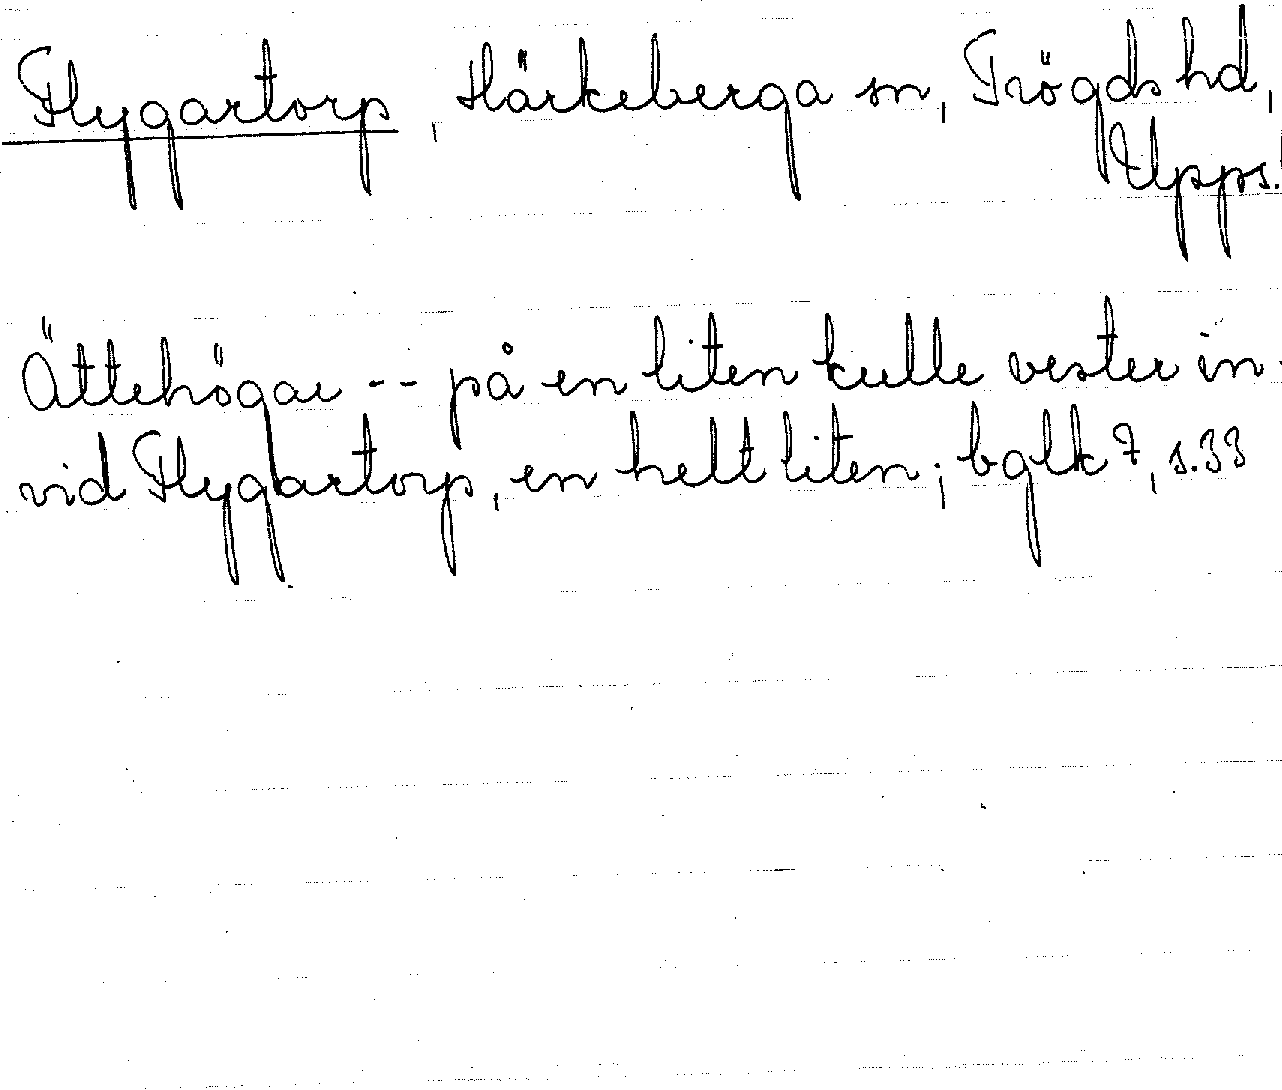 Flygartorp, Härkeberga sn, Trögds hd,
Upps.l
Ättehögar -- på en liten kulle vester in-
vid Flygartorp, en helt liten; bglk 7, s.33